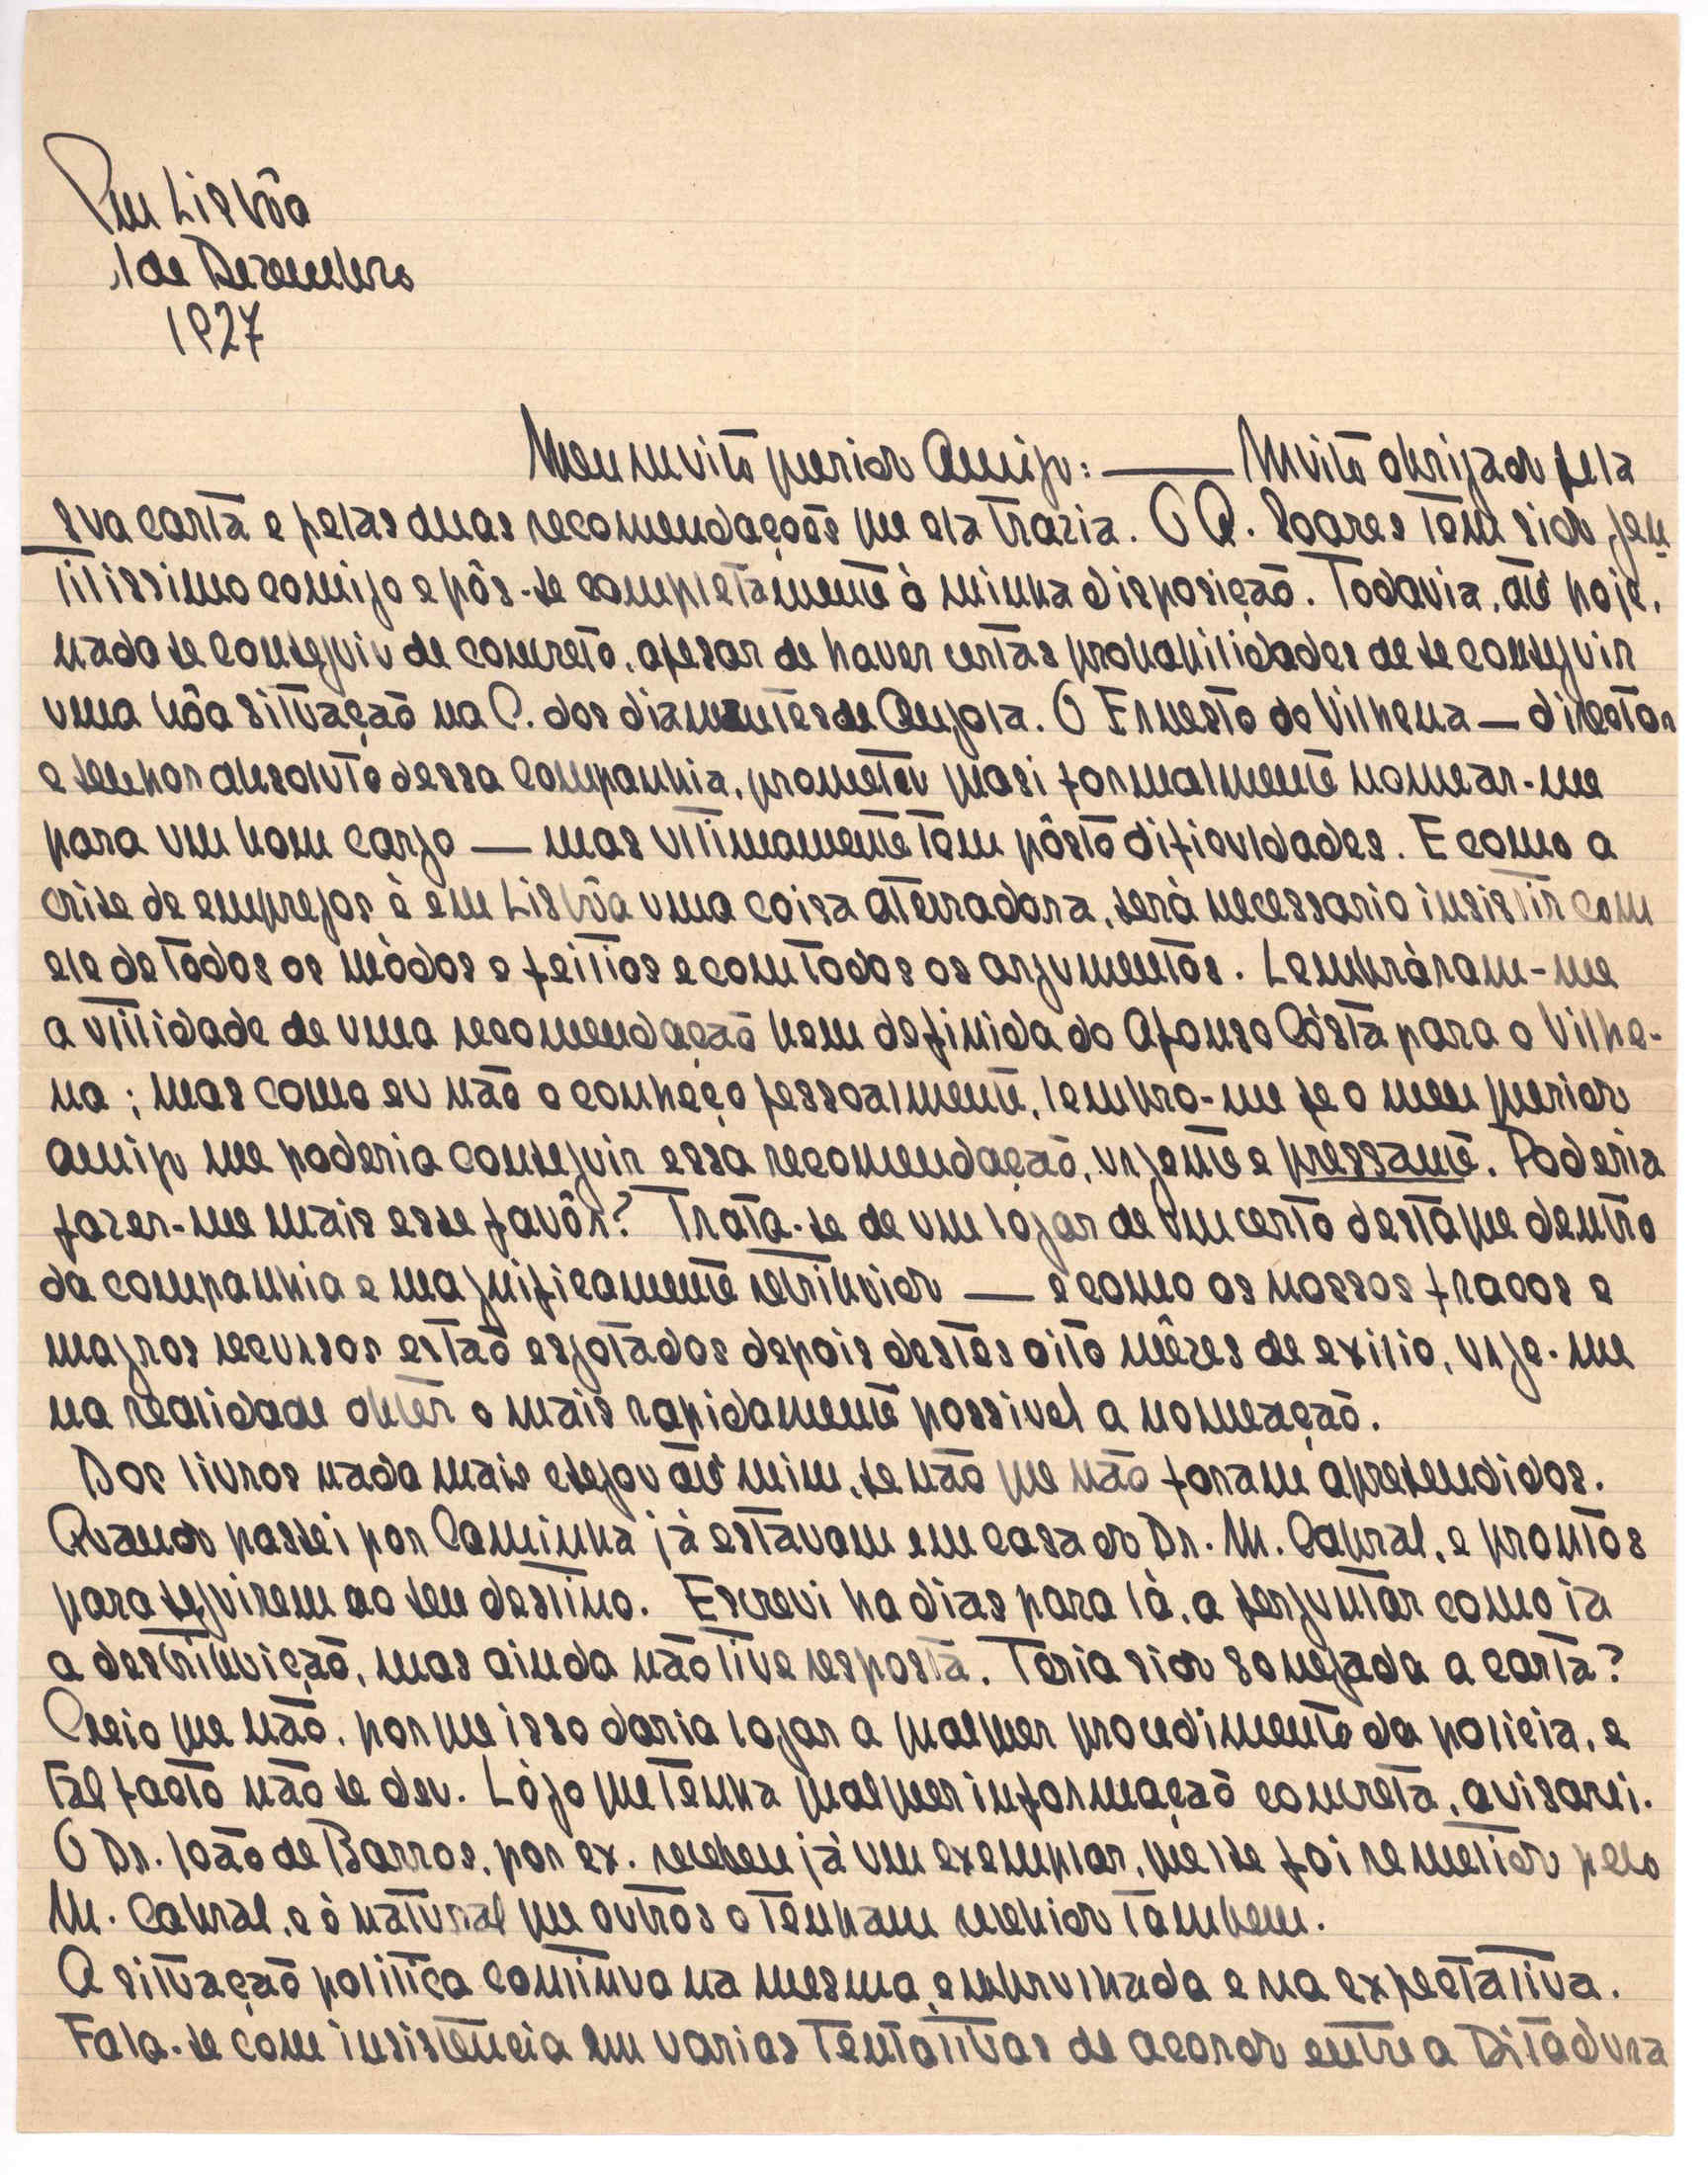 Em Lisbôa
1 de Dezembro
1927
Meu muito querido Amigo: — Muito obrigado pela
sua carta e pelas duas recomendações que ela trazia. O A. Soares tem sido gen
tilissimo comigo e pôs-se completamente á minha disposição. Todavia, até hoje,
nada se conseguiu de concreto, apesar de haver certas probabilidades de se conseguir
uma bôa situação na C. dos diamantes de Angola. O Ernesto de Vilhena — director
e senhor absoluto dessa Companhia, prometeu quasi formalmente nomear-me
para um bom cargo — mas ultimamente tem pôsto dificuldades. E como a
crise de empregos é em Lisbôa uma coisa aterradora, será necessario insistir com
ele de todos os módos e feitios e com todos os argumentos. Lembráram-me
a utilidade de uma recomendação bem definida do Afonso Cósta para o Vilhe-
na; mas como eu não o conheço pessoalmente, lembro-me se o meu querido
amigo me poderia conseguir essa recomendação, urgente e pressante. Poderia
fazer-me mais esse favôr? Trata-se de um logar de um certo destaque dentro
da companhia e magnificamente retribuido — e como os nossos fracos e
magros recursos estão esgotados depois destes oito mêzes de exilio, urge-me
na realidade obter o mais rapidamente possivel a nomeação.
Dos livros nada mais chegou até mim, se não que não foram apreendidos.
Quando passei por Caminha já estavam em casa do Dr. M. Cabral, e prontos
para seguirem ao seu destino. Escrevi ha dias para lá, a perguntar como ia
a destribuição, mas ainda não tive resposta. Teria sido sonegada a carta?
Creio que não, porque isso daria logar a qualquer procedimento da policia, e
tal facto não se deu. Lógo que tenha qualquer informação concreta, avisarei.
O Dr. João de Barros, por ex. recebeu já um exemplar, que lhe foi remetido pelo
M. Cabral, e é natural que outros o tenham recebido tambem.
A situação politica continua na mesma, embrulhada e na expectativa.
Fala-se com insistencia em varias tentativas de acordo entre a Ditadura